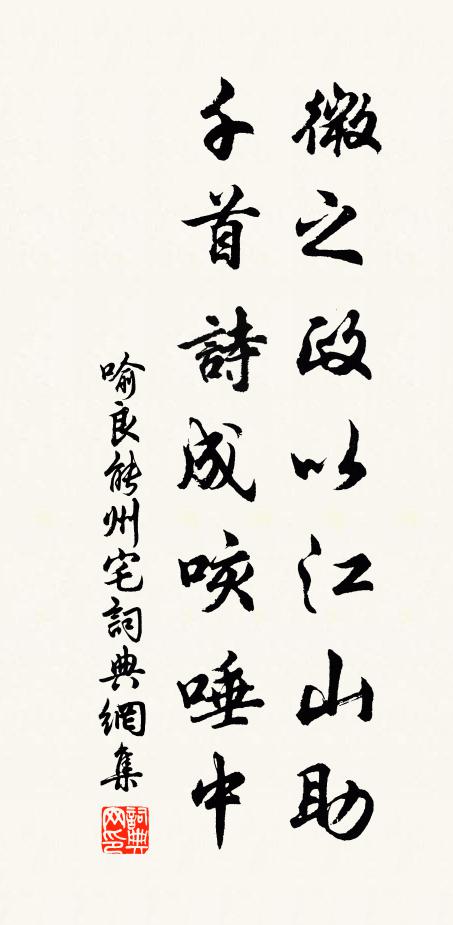 微之政以江山助
千首詩成咳唾中
喻良能州宅詞典網集
詞典网印